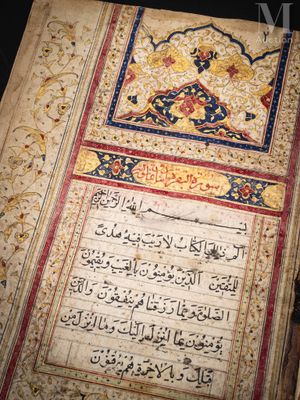 M
Auction
سورة البقرة
بسم الله الرحمن الرحيم
الم ذلك الكتاب لا ريب فيه هدى
للمتقين الذين يؤمنون بالغيب ويقيمون
الصلوة ومما رزقناهم ينفقون والذين
يؤمنون بما انزل اليك وما انزل من
قبلك وبالاخرة هم يوقنون